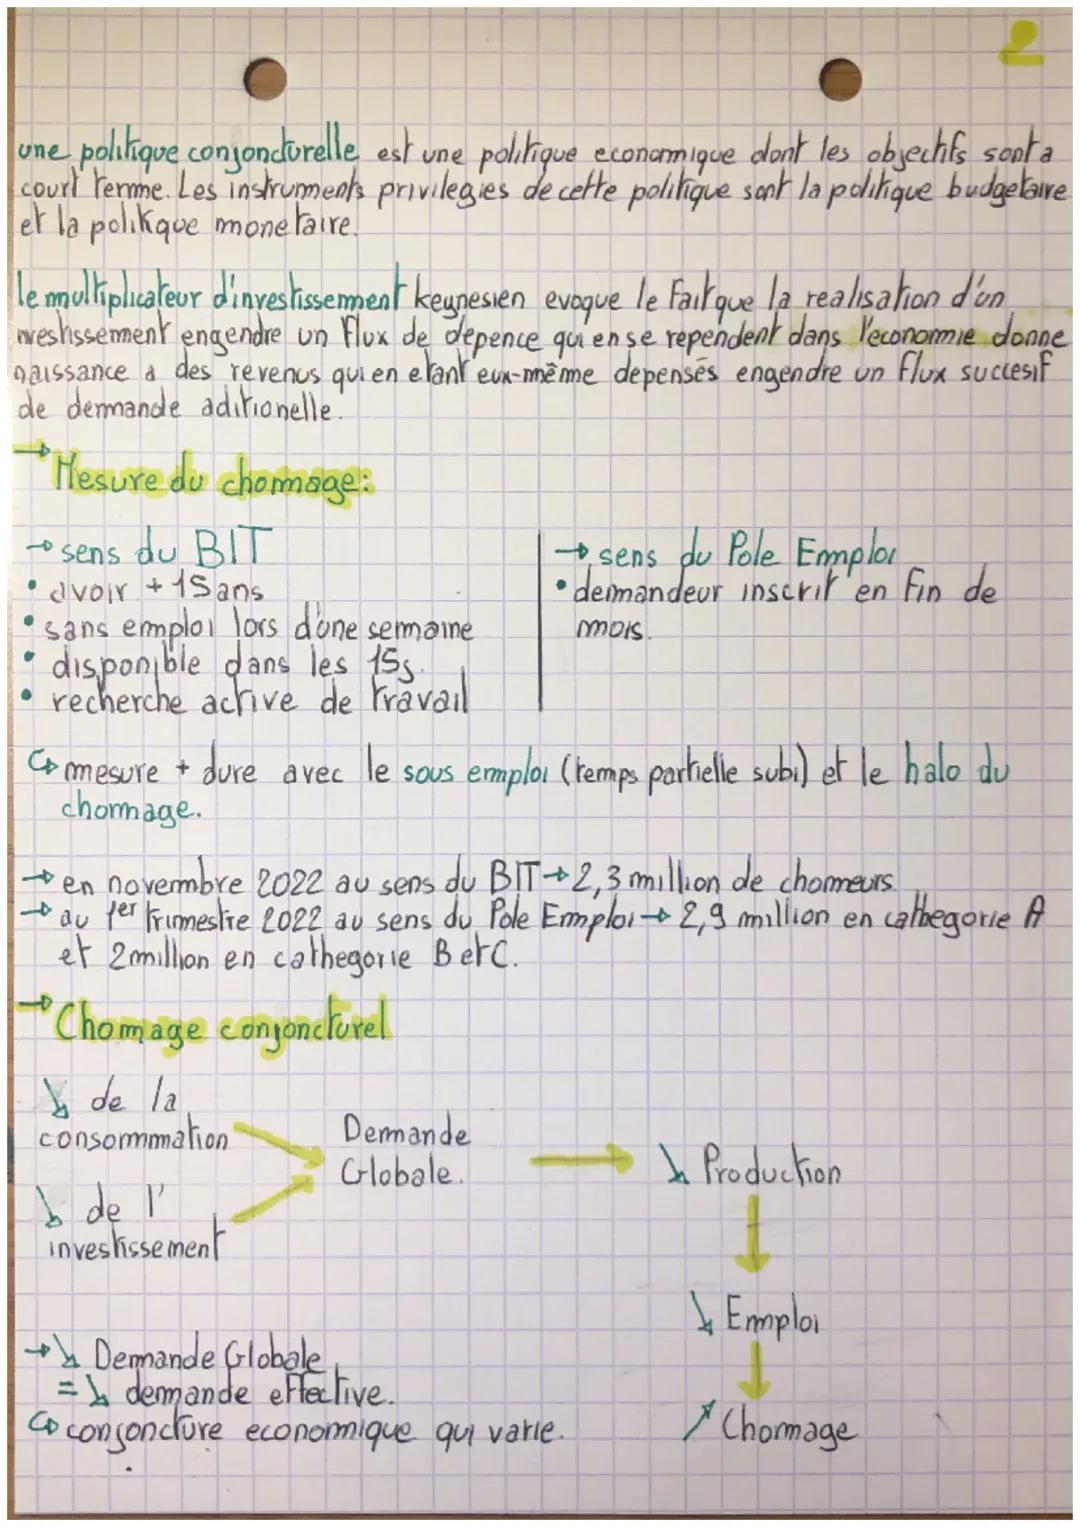 2
une politique conjoncturelle est une politique economique dont les objectifs sont a
court terme. Les instruments privilegies de cette politique sont la politique budgetaire
et la politique monetaire.
le multiplicateur d'investissement keynesien evoque le fait que la realisation d'un
investissement engendre un flux de depence qui en se rependent dans l'economie donne
naissance a des revenus qui en etant eux-même depensés engendre un flux succesif
de demande aditionelle.
→ Mesure du chomage:
→ sens du BIT
• avoir + 15ans
• sans emploi lors d'une semaine
• disponible dans les 15s.
• recherche active de travail
→ sens du Pole Emploi
• demandeur inscrit en fin de
mois.
↪ mesure + dure avec le sous emploi (temps partielle subi) et le halo du
chomage.
→ en novembre 2022 au sens du BIT → 2,3 million de chomeurs.
→ au 1er trimestre 2022 au sens du Pole Emploi → 2,9 million en cathegorie A
et 2million en cathegorie B et C.
→ Chomage conjoncturel
↘ de la
consommation
↘ de l'
investissement
Demande
Globale.
→ ↘ Production
↓
↘ Emploi
↓
↗ Chomage
→ ↘ Demande Globale
= ↘ demande effective.
↪ conjoncture economique qui varie.